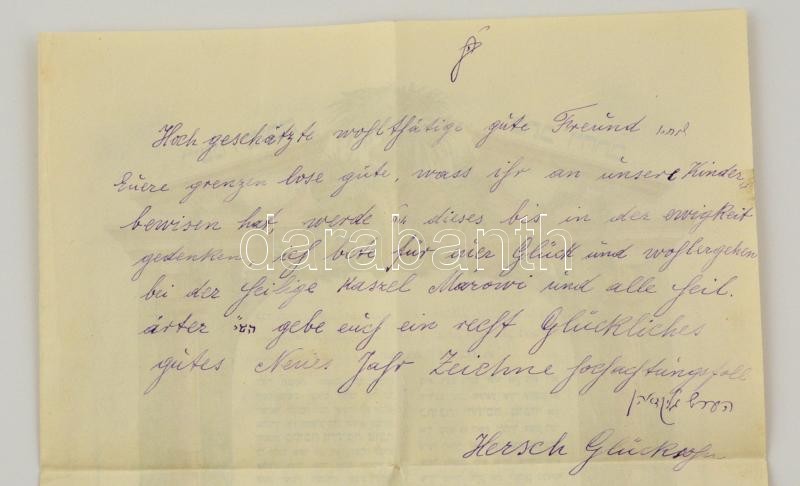 Hoch geschätzte wohlthätige gute Freund
Euere grenzen lose güte, wass ihr an unsere Kinder
bewisen hat, werde dieses bis in der ewigkeit
gedenken, ich bete für vier Glück und wohlergehen
bei der heilige Kaszel Marowi und alle heil.
ärter הי"ו gebe euch ein recht Glückliches
gutes Neues Jahr Zeichne hochachtungsfoll
הערש גליקזאהן
Hersch Glücksohn
darabanth